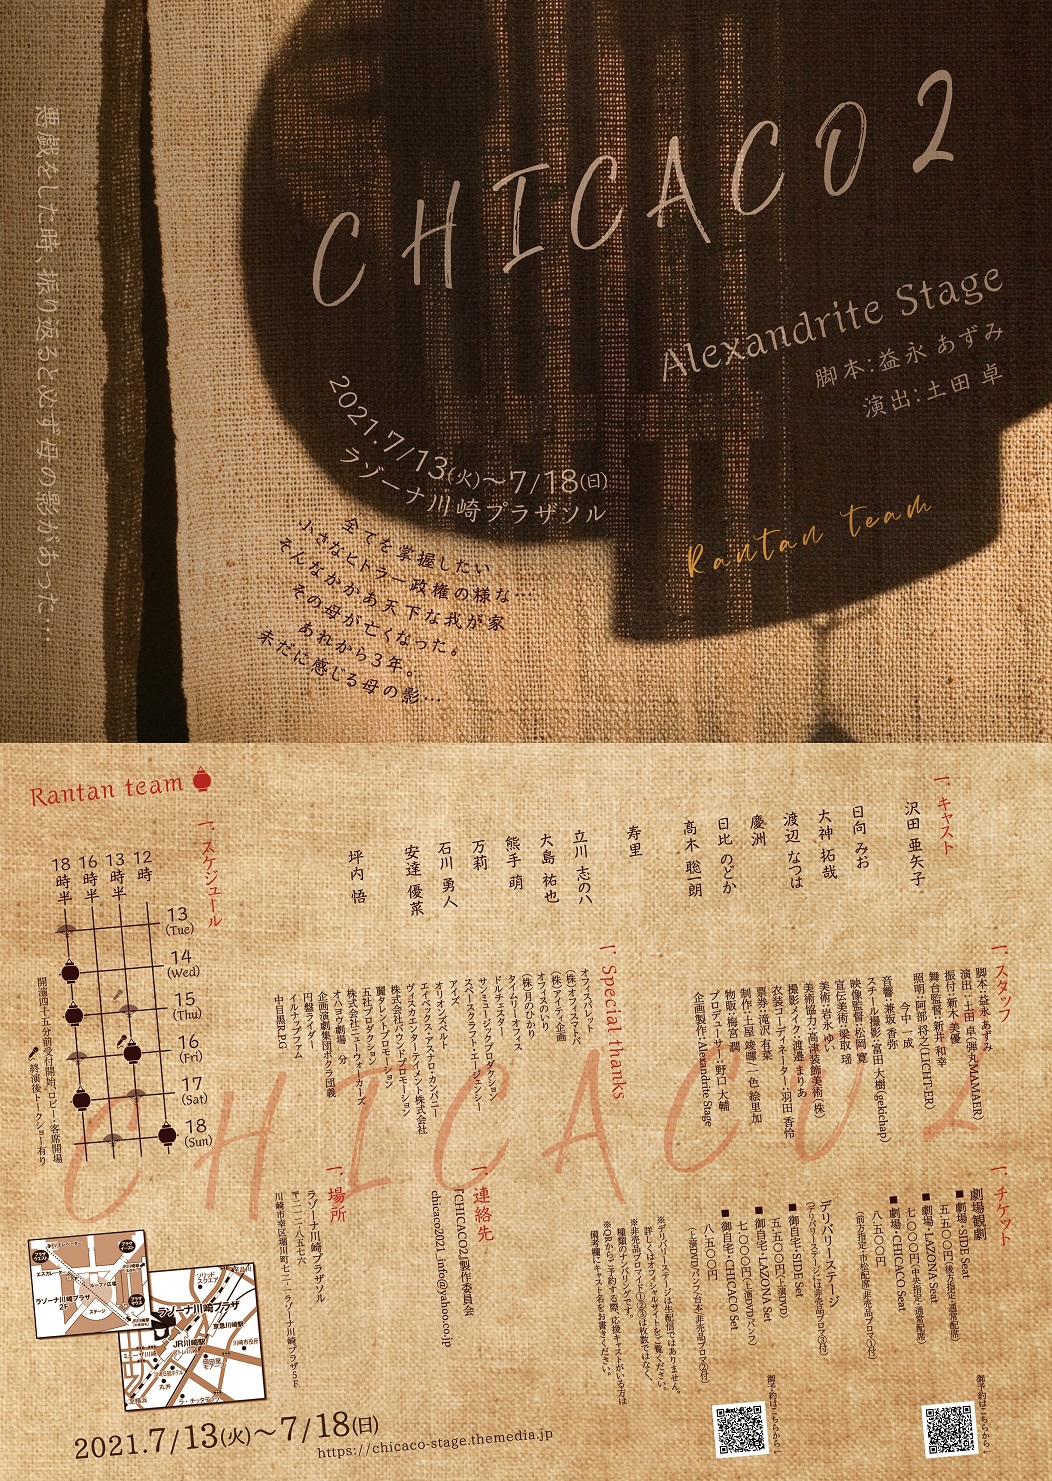 CHICACO 2
Alexandrite Stage
脚本:益永 あずみ
演出:土田 卓
悪戯をした時、振り返ると必ず母の影があった…
2021.7/13(火)〜7/18(日)
ラゾーナ川崎プラザソル
全てを掌握したい
小さなヒトラー政権の様な…
そんなかかあ天下な我が家
その母が亡くなった。
あれから3年。
未だに感じる母の影…
Rantan team
一、キャスト
沢田 亜矢子
日向 みお
大神 拓哉
渡辺 なつは
慶洲
日比 のどか
高木 聡一朗
寿里
立川 志のハ
大島 祐也
熊手 萌
万莉
石川 勇人
安達 優菜
坪内 悟
Rantan team
一、スケジュール
12時
13時半
16時半
18時半
13(Tue)
14(Wed)
15(Thu)
16(Fri)
17(Sat)
18(Sun)
開演四十五分前受付開始、ロビー・客席開場
終演後トークショー有り
一、スタッフ
脚本:益永 あずみ
演出:土田 卓(弾丸MAMAER)
振付:新木 美優
舞台監督:新井 和幸
照明:阿部 将之(LICHT-ER)
今中 一成
音響:兼坂 香弥
スチール撮影:富田 大樹(gekichap)
映像監督:松岡 寛
宣伝美術:梁取 瑶
美術:岩永 ゆい
美術協力:高津装飾美術(株)
撮影メイク:渡邉 まりあ
衣装コーディネーター:羽田 香怜
票券:滝沢 有菜
制作:土屋 竣曜・一色 絵里加
物販:梅宮 潤
プロデューサー:野口 大輔
企画製作:Alexandrite Stage
一、Special thanks
オフィスパレット
(株)オフィスマトバ
(株)アイティ企画
オフィスのいり
(株)月のひかり
タイムリーオフィス
ドルチェスター
サンミュージックプロダクション
スペースクラフト・エージェンシー
アイズ
オリオンズベルト
エイベックス・アスナロ・カンパニー
ヴィスカエンターテイメント株式会社
株式会社バウンドプロモーション
麗タレントプロモーション
五社プロダクション
株式会社ニューウォーカーズ
オハヨウ劇場 分
企画演劇集団ボクラ団義
円盤ライダー
イルナップファム
中目黒RPG
CHICACO 2
一、チケット
劇場観劇
■劇場・SIDE Seat
五、五〇〇円(後方指定・通常配席)
■劇場・LAZONA Seat
七、〇〇〇円(中央指定・通常配席)
■劇場・CHICACO Seat
八、五〇〇円
(前方指定・市松配席・非売品ブロマ①付)
デリバリーステージ
(デリバリーステージには非売品ブロマ③付)
■御自宅・SIDE Set
五、五〇〇円(上演DVD)
■御自宅・LAZONA Set
七、〇〇〇円(上演DVD・パンフ)
■御自宅・CHICACO Set
八、五〇〇円
(上演DVD・パンフ・台本・非売品ブロマ②付)
※デリバリーステージは生配信ではありません。
詳しくはオフィシャルサイトをご覧ください。
※非売品ブロマイド①②③は枚数ではなく、
種類のナンバリングです。
※QRからご予約する際、応援キャストがいる方は
備考欄にキャスト名をお書きください。
御予約はこちらから↓
御予約はこちらから↓
一、連絡先
『CHICACO2』製作委員会
chicaco2021_info@yahoo.co.jp
一、場所
ラゾーナ川崎プラザソル
〒二一二-八五七六
川崎市幸区堀川町七二-一ラゾーナ川崎プラザ5F
エスカレーター
ルーファ広場
ラゾーナ川崎プラザ
2F
ステージ
ソリッドスクエア
ラゾーナ川崎プラザ
京急川崎駅
JR川崎駅
ミューザ川崎
川崎市役所
岡田屋モアーズ
丸井
ラ・チッタデッラ
2021.7/13(火)〜7/18(日)
https://chicaco-stage.themedia.jp/